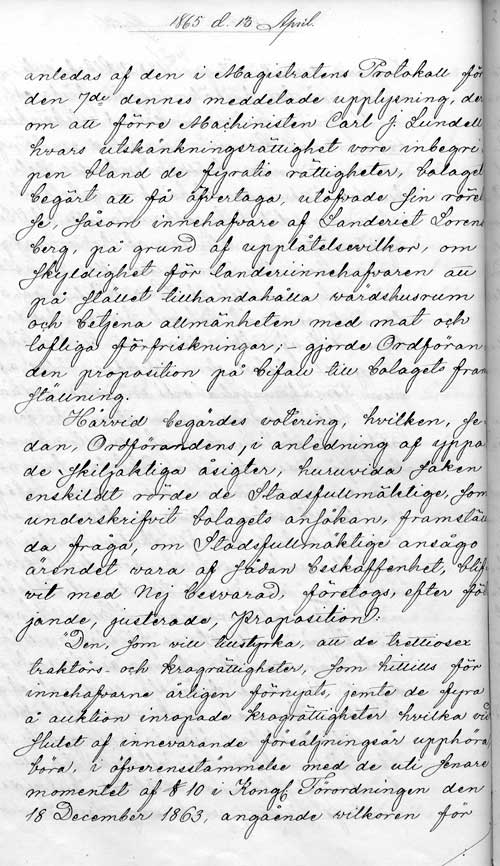 1865 d. 13 April.
anledas af den i Magistratens Protokall för
den 7de dennes meddelade upplysning, der
om att förre Machinisten Carl J. Lundell
hvars utskänkningsrättighet vore inbegri
pen bland de fyratio rättigheter, bolaget
begärt att få öfvertaga, utöfvade sin rörel
se, såsom innehafvare af Landeriet Lorens
berg, på grund af upplåtelsevilkor, om
skyldighet för landeriinnehafvaren att
på stället tillhandahålla värdshusrum
och betjena allmänheten med mat och
lofliga förfriskningar; – gjorde Ordföran
den proposition på bifall till bolagets fram
ställning.
Härvid begärdes votering, hvilken, se
dan, Ordförandens, i anledning af yppa
de skiljaktiga åsigter, huruvida saken
enskildt rörde de Stadsfullmäktige, som
underskrifvit bolagets ansökan, framstäl
da fråga, om Stadsfullmäktige ansågo
ärendet vara af sådan beskaffenhet, blif
vit med Nej besvarad, företogs, efter föl
jande, justerade, Proposition:
"Den, som vill tillstyrka, att de trettiosex
traktörs- och krogrättigheter, som hittills för
innehafvarne årligen förnyats, jemte de fyra
å auktion inropade krogrättigheter hvilka vid
slutet af innevarande försäljningsår upphöra
böra, i öfverensstämmelse med de uti senare
momentet af § 10 i Kongl. Förordningen den
18 December 1863, angående vilkoren för